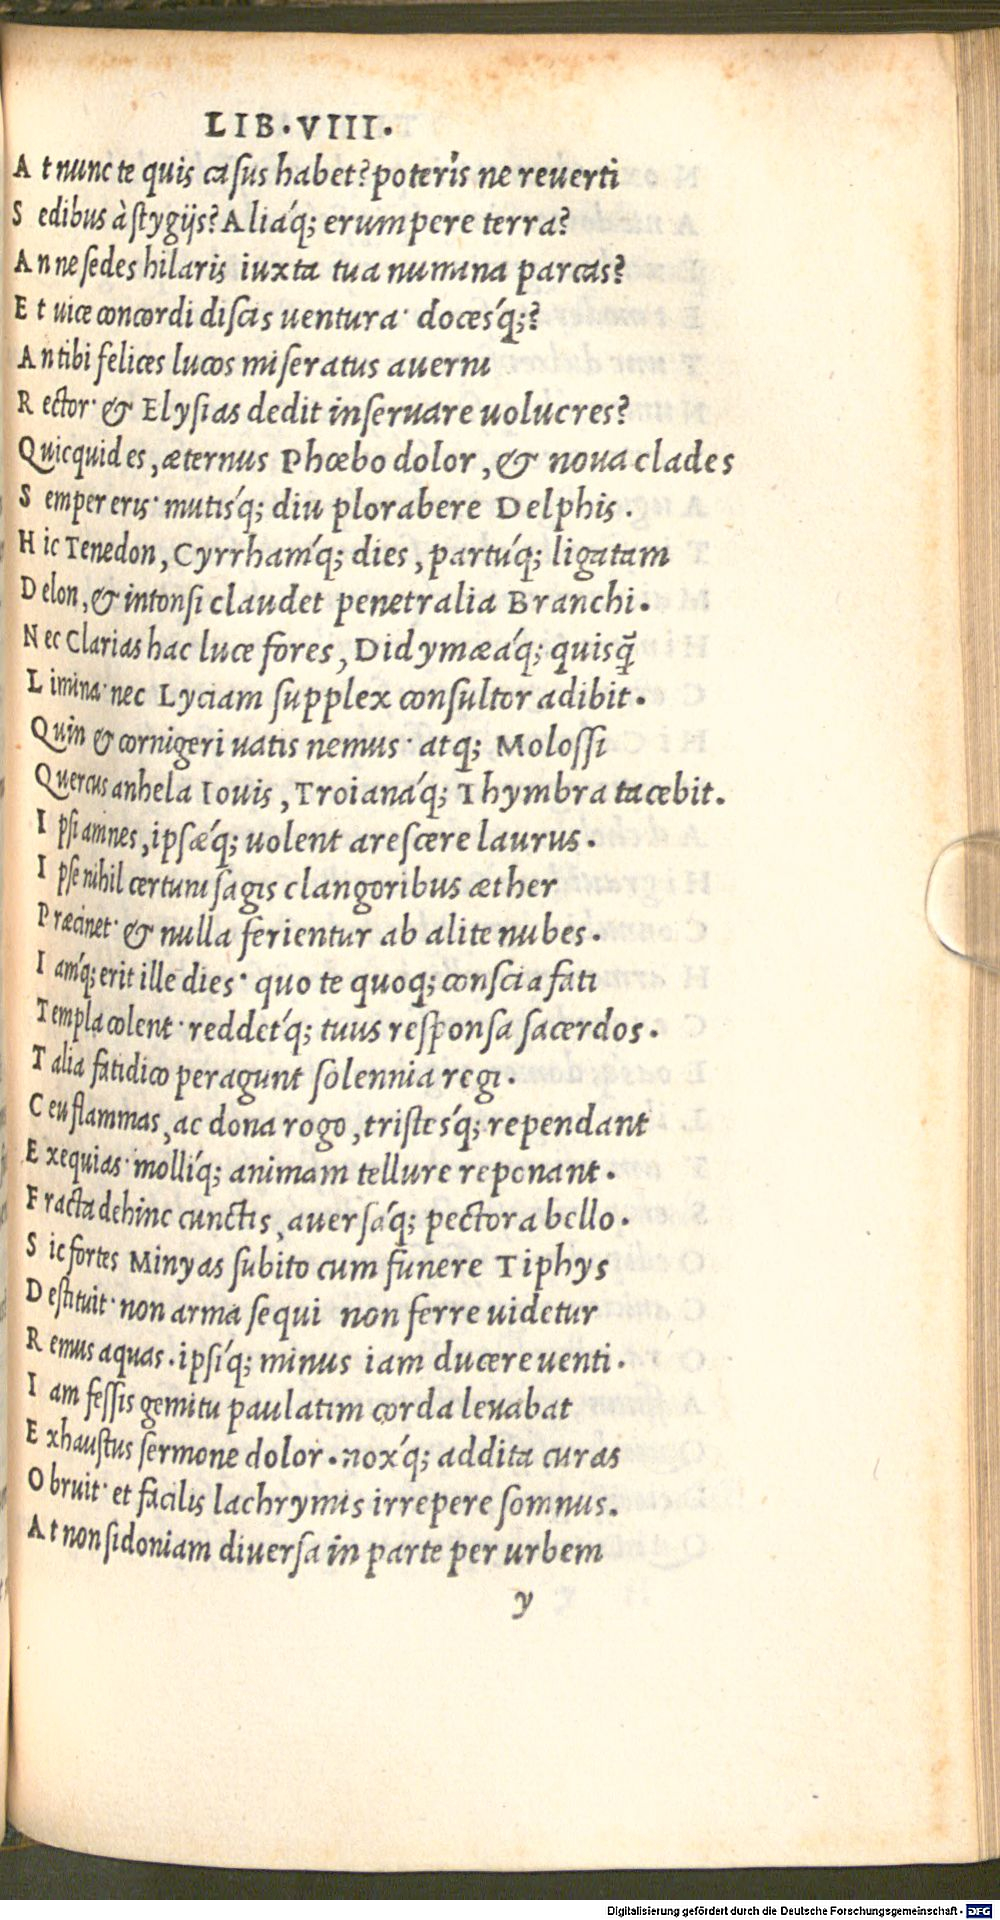 LIB.VIII.
At nunc te quis casus habet? poterís ne reuerti
Sedibus à stygijs? Aliáq; erumpere terra?
An ne sedes hilaris iuxta tua numina parcas?
Et uice concordi discis uentura· docésq;?
An tibi felices lucos miseratus auerni
Rector· & Elysias dedit inseruare uolucres?
Quicquid es, æternus Phœbo dolor, & noua clades
Semper eris· mutísq; diu plorabere Delphis.
Hic Tenedon, Cyrrhámq; dies, partúq; ligatam
Delon, & intonsi claudet penetralia Branchi.
Nec Clarias hac luce fores, Didymæáq; quisq̃
Limina· nec Lyciam supplex consultor adibit.
Quin & cornigeri uatis nemus· atq; Molossi
Quercus anhela Iouis, Troianáq; Thymbra tacebit.
Ipsi amnes, ipsǽq; uolent arescere laurus.
Ipse nihil certum sagis clangoribus æther
Præcinet· & nulla ferientur ab alite nubes.
Iamq́; erit ille dies· quo te quoq; conscia fati
Templa colent· reddétq; tuus responsa sacerdos.
Talia fatidico peragunt solennia regi.
Ceu flammas, ac dona rogo, tristésq; rependant
Exequias· mollíq; animam tellure reponant.
Fracta dehinc cunctis, auersáq; pectora bello.
Sic fortes Minyas subito cum funere Tiphys
Destituit· non arma sequi non ferre uidetur
Remus aquas. ipsíq; minus iam ducere uenti.
Iam fessis gemitu paulatim corda leuabat
Exhaustus sermone dolor. noxq́; addita curas
Obruit· et facilis lachrymis irrepere somnus.
At non sidoniam diuersa in parte per urbem
y
Digitalisierung gefördert durch die Deutsche Forschungsgemeinschaft - DFG